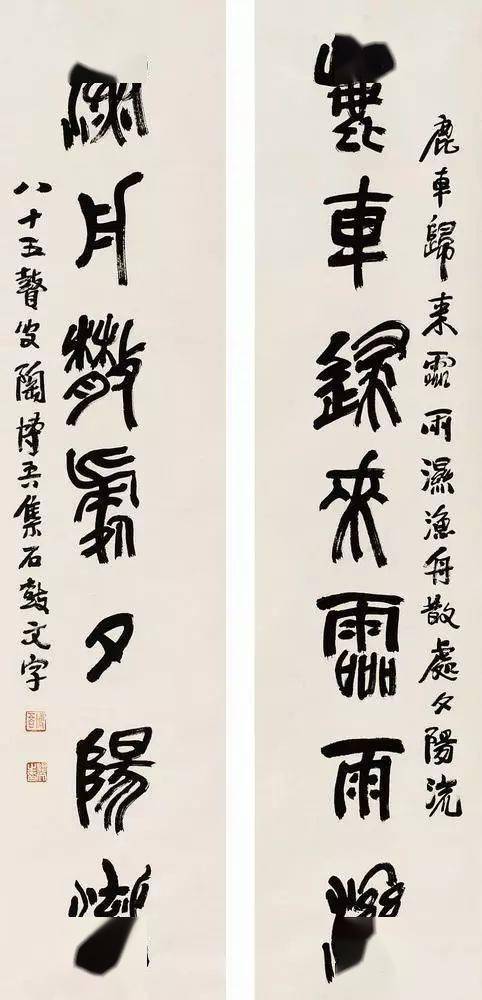 鹿車歸来霝雨濕漁舟散處夕陽流
鹿車歸來霝雨
漁舟散處夕陽
八十五瞽叟陶博吾集石鼓文字